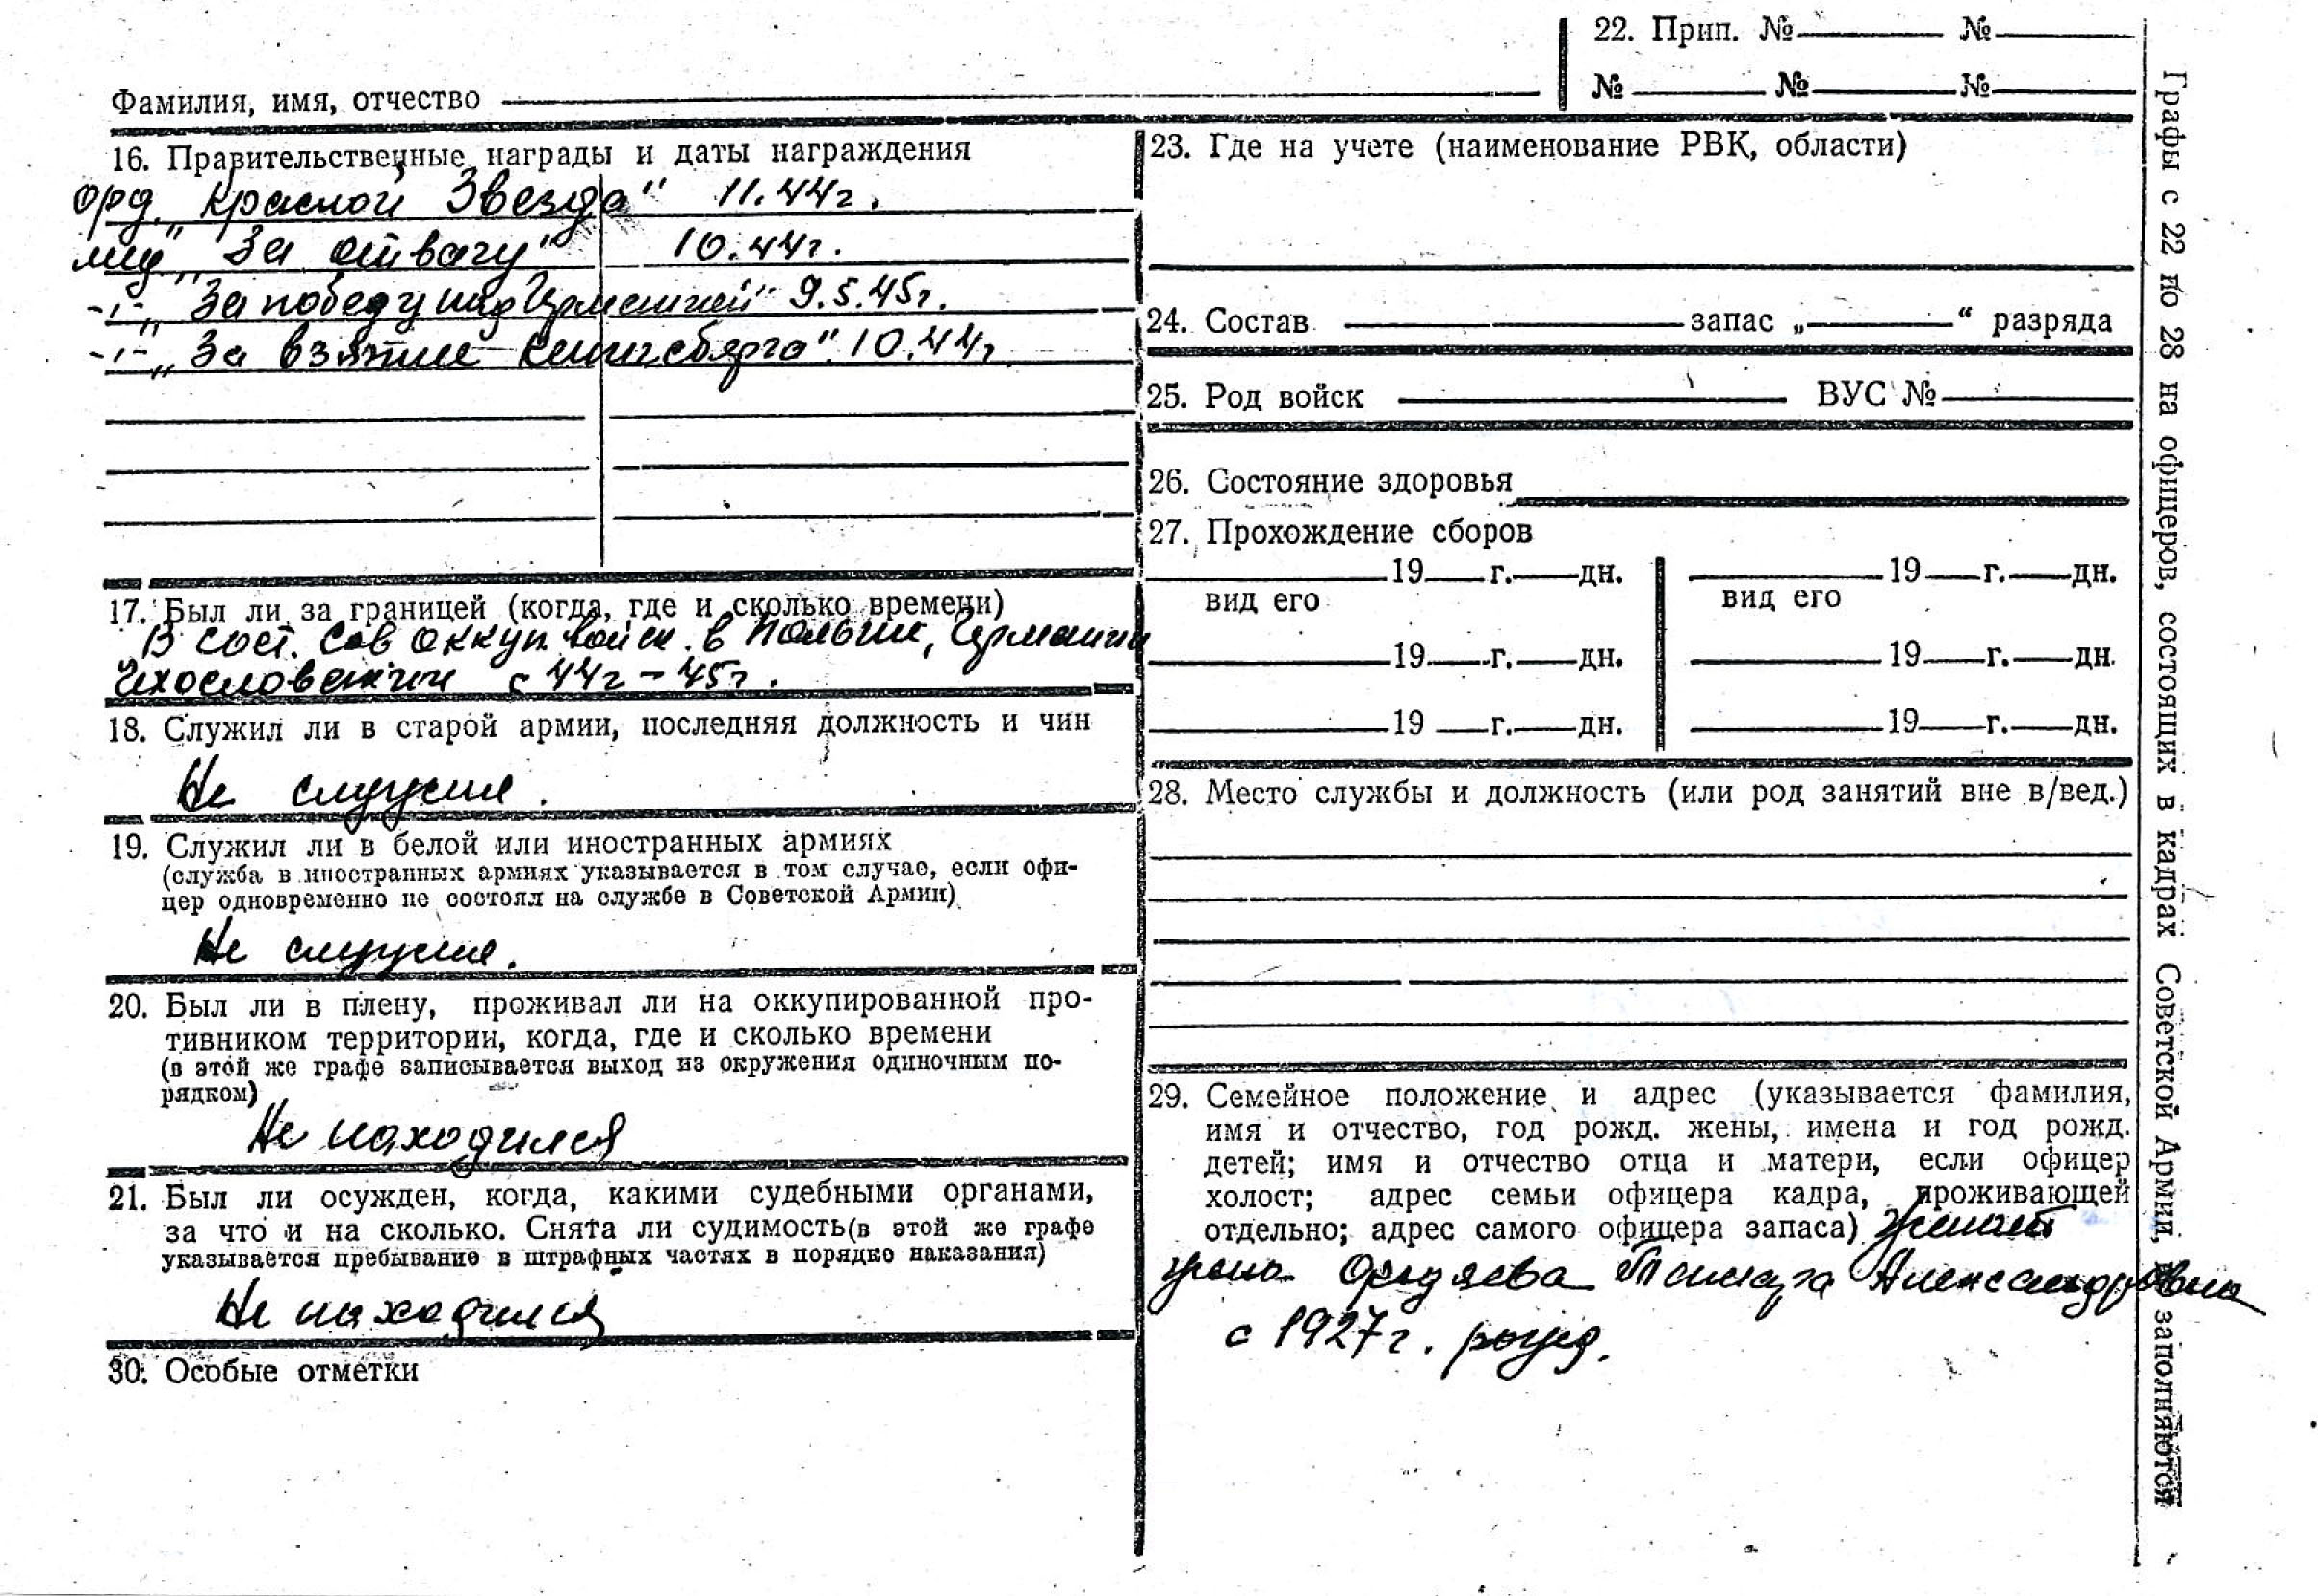 22. Прип. № №
№ № №
Фамилия, имя, отчество
16. Правительственные награды и даты награждения
орд. „Красной Звезда" 11.44г.
мед „За отвагу" 10.44г.
-"- „За победу над Германией" 9.5.45г.
-"- „За взятие Кенигсберга" 10.44г
17. Был ли за границей (когда, где и сколько времени)
В сост. Сов оккуп войск. в Польши, Германии
Чехословакии с 44г – 45г.
18. Служил ли в старой армии, последняя должность и чин
Не служил.
19. Служил ли в белой или иностранных армиях
(служба в иностранных армиях указывается в том случае, если офи-
цер одновременно не состоял на службе в Советской Армии)
Не служил.
20. Был ли в плену, проживал ли на оккупированной про-
тивником территории, когда, где и сколько времени
(в этой же графе записывается выход из окружения одиночным по-
рядком)
Не находился
21. Был ли осужден, когда, какими судебными органами,
за что и на сколько. Снята ли судимость (в этой же графе
указывается пребывание в штрафных частях в порядке наказания)
Не находился
30. Особые отметки
23. Где на учете (наименование РВК, области)
24. Состав запас „ “ разряда
25. Род войск ВУС №
26. Состояние здоровья
27. Прохождение сборов
19 г. дн. 19 г. дн.
вид его вид его
19 г. дн. 19 г. дн.
19 г. дн. 19 г. дн.
28. Место службы и должность (или род занятий вне в/вед.)
29. Семейное положение и адрес (указывается фамилия,
имя и отчество, год рожд. жены, имена и год рожд.
детей; имя и отчество отца и матери, если офицер
холост; адрес семьи офицера кадра, проживающей
отдельно; адрес самого офицера запаса) Женат
жена Тамара Александровна
с 1927г. рожд.
Графы с 22 по 28 на офицеров, состоящих в кадрах Советской Армии, не заполняются